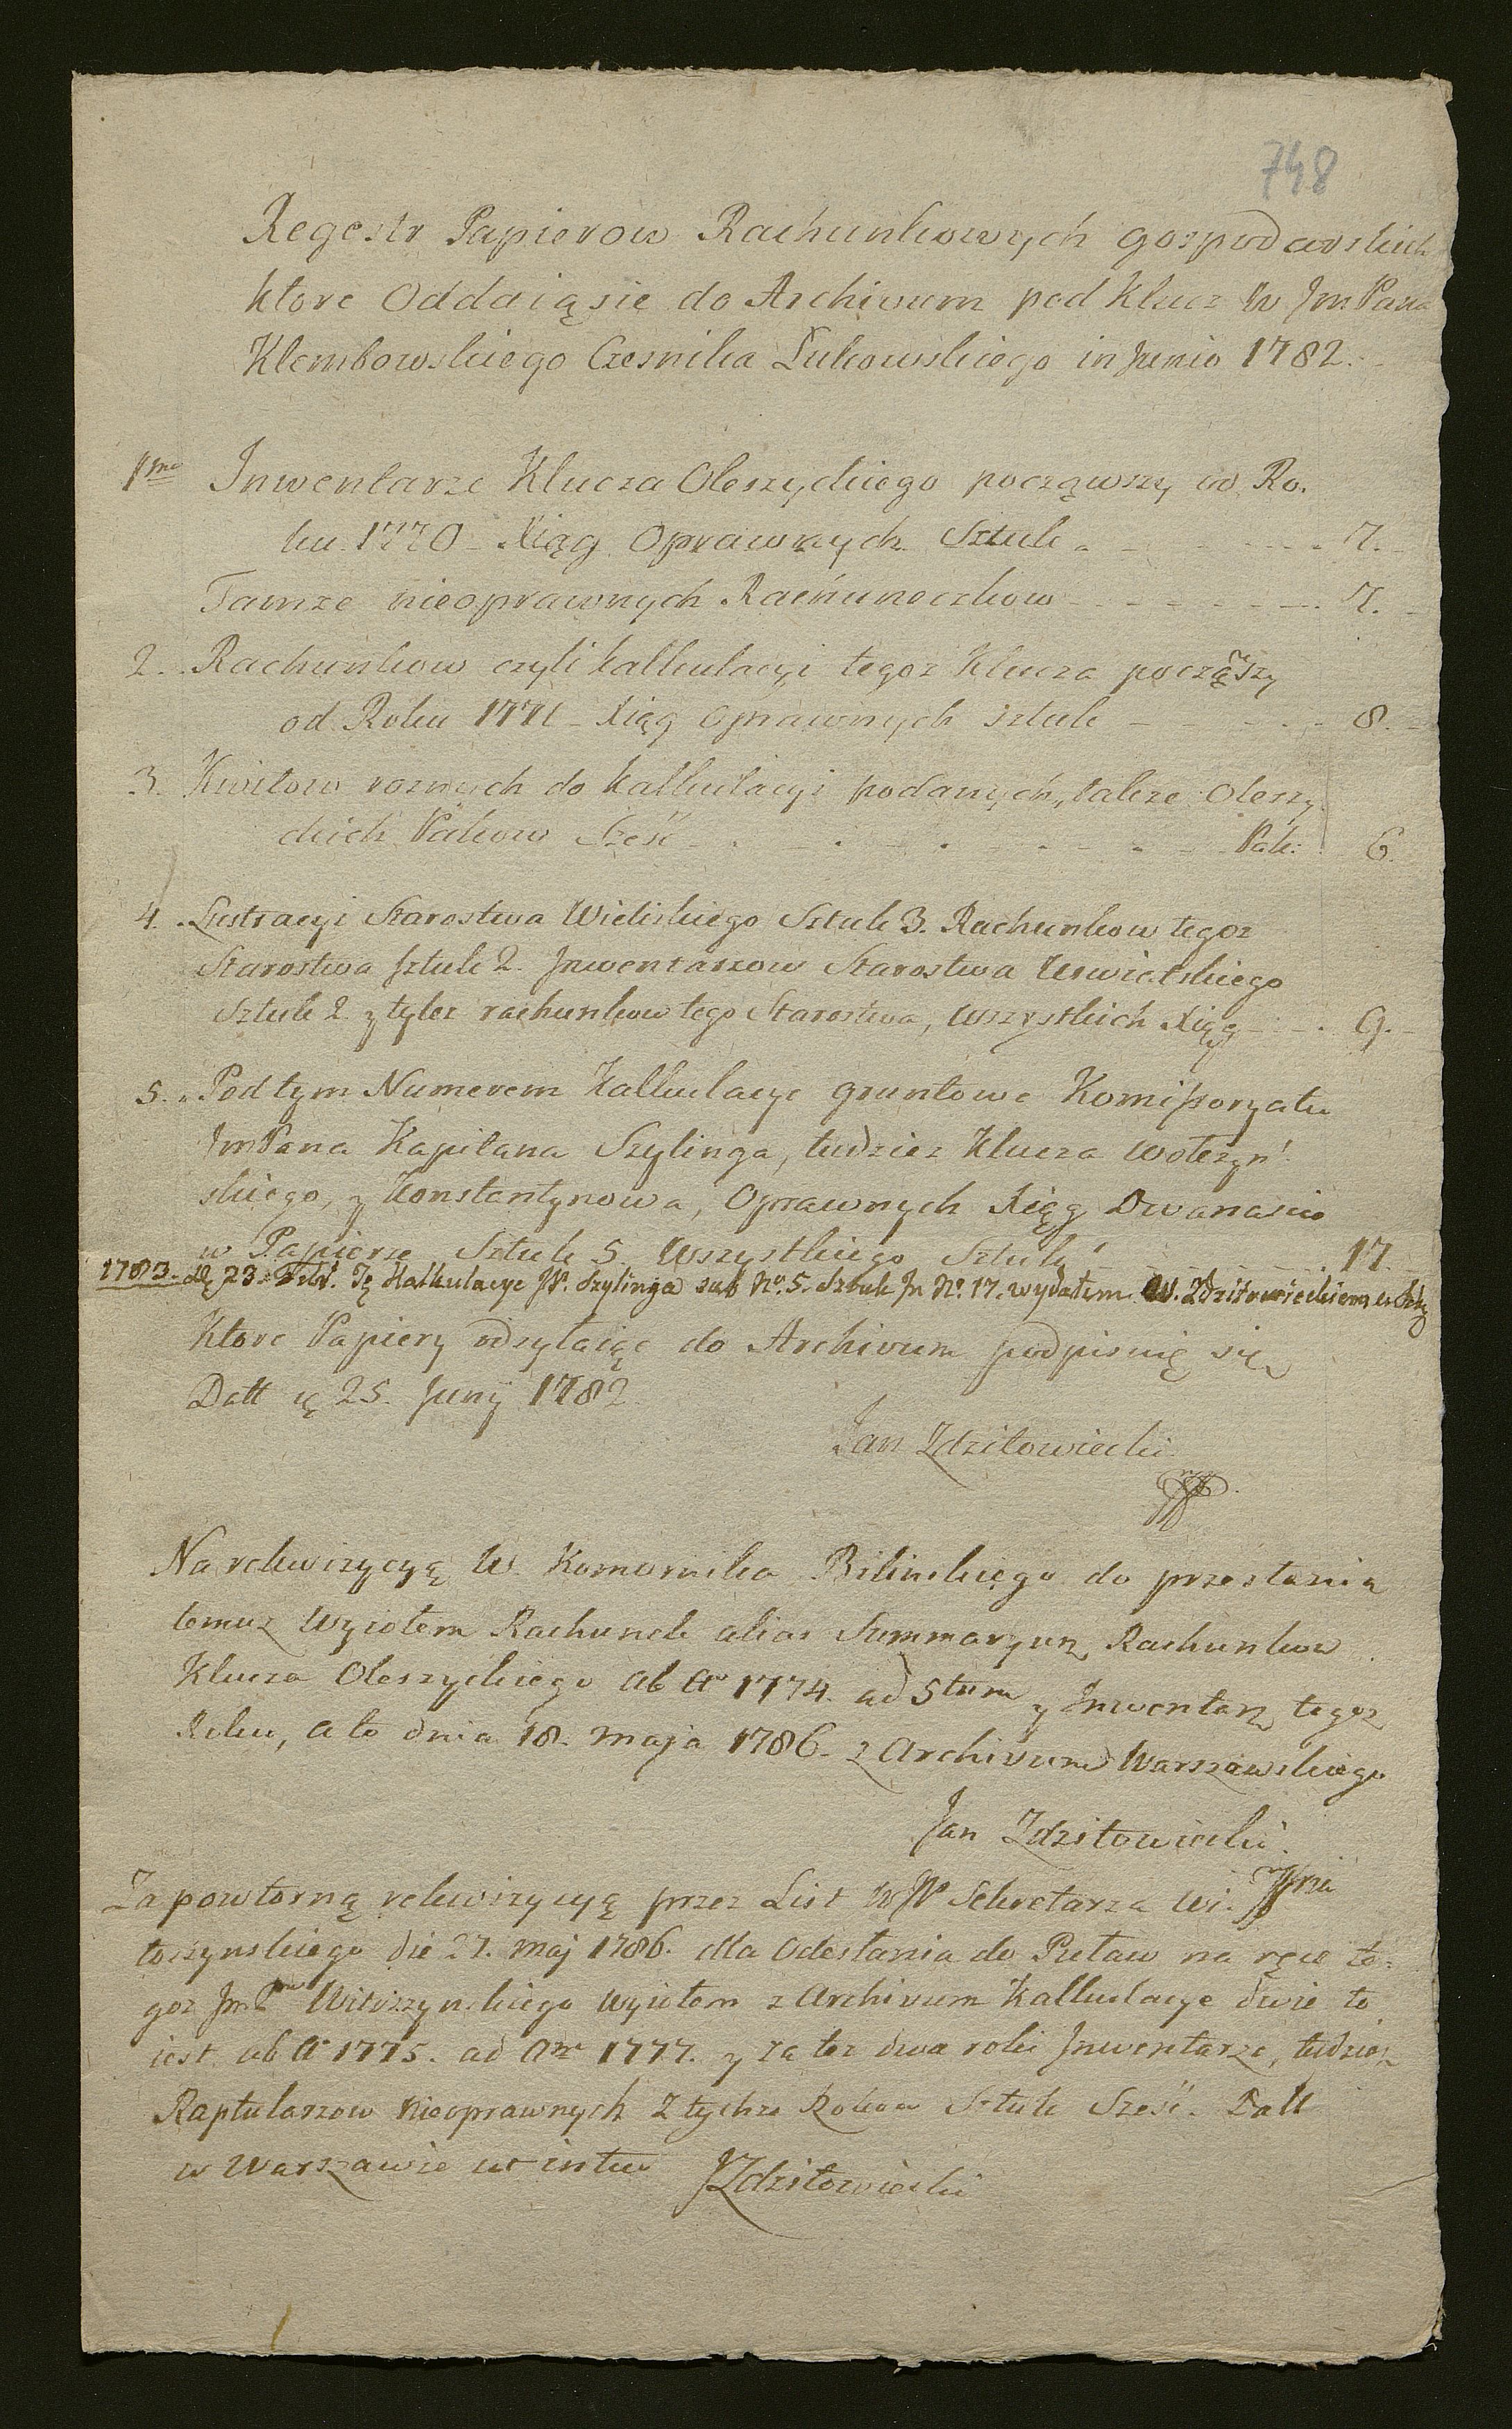 748
Regestr Papierow Rachunkowych gospodarskich
ktore Oddaią sie do Archivum pod Klucz W JmPana
Klembowskiego Czesnika Łukowskiego in Junio 1782.
1mo Inwentarze Klucza Oleszyckiego począwszy od Ro.
ku 1770 - Xiąg Oprawnych Sztuk - 7.
Tamze nieoprawnych Rachuneczkow - 7.
2. Rachunkow czyli kalkulacyi tegoz Klucza począwszy
od Roku 1771 - Xiąg oprawnych sztuk - 8.
3. Kwitow roznych do kalkulacyi podanych, takze Oleszy
ckich Pakow Szesć - Pak: 6.
4. Lustracyi Starostwa Wieliskiego Sztuk 3. Rachunkow tegoz
Starostwa sztuk 2. Inwentarzow Starostwa Uswiatskiego
Sztuk 2 y tylez rachunkow tego Starostwa, wszystkich Xiąg - 9.
5. Pod tym Numerem Kalkulacye gruntowe Komissoryatu
JmPana Kapitana Szylinga, tudziez Klucza Wołczyń
skiego, y Konstantynowa, Oprawnych Xiąg Dwanascie
w Papierze Sztuk 5. Wszystkiego Sztuk - 17.
1783. d. 23. Tę Kalkulacye JP. Szylinga sub No. 5. Sztuk In No. 17. wydałem W. Zdziłowieckiemu
Ktore Papiery odsyłaiąc do Archivum podpisuię się
Datt ą 25. Junij 1782
Jan Zdziłowiecki
Na rekwizycyą W. Komornika Bilinskiego do przesłania
temuz Wyiołem Rachunek alias Summaryusz Rachunkow
Klucza Oleszyckiego ab Ao 1774. ad 5tum y Inwentarz tegoz
Roku, a to dnia 18. maja 1786. z Archivum Warszawskiego
Jan Zdziłowiecki
Za powtorną rekwizycyą przez List WJP Sekretarza Wi.
toszynskiego die 27. maj 1786. dla odesłania do Puław na ręce te=
goz JmP Witoszynskiego wyiołem z Archivum Kalkulacye dwie to
iest ab Ao 1775. ad Am 1777. y za tez dwa roki Inwentarze, tudziesz
Raptularzow nieoprawnych z tychze Rokow Sztuk Szesć. Datt
w Warszawie ut intus JZdziłowiecki